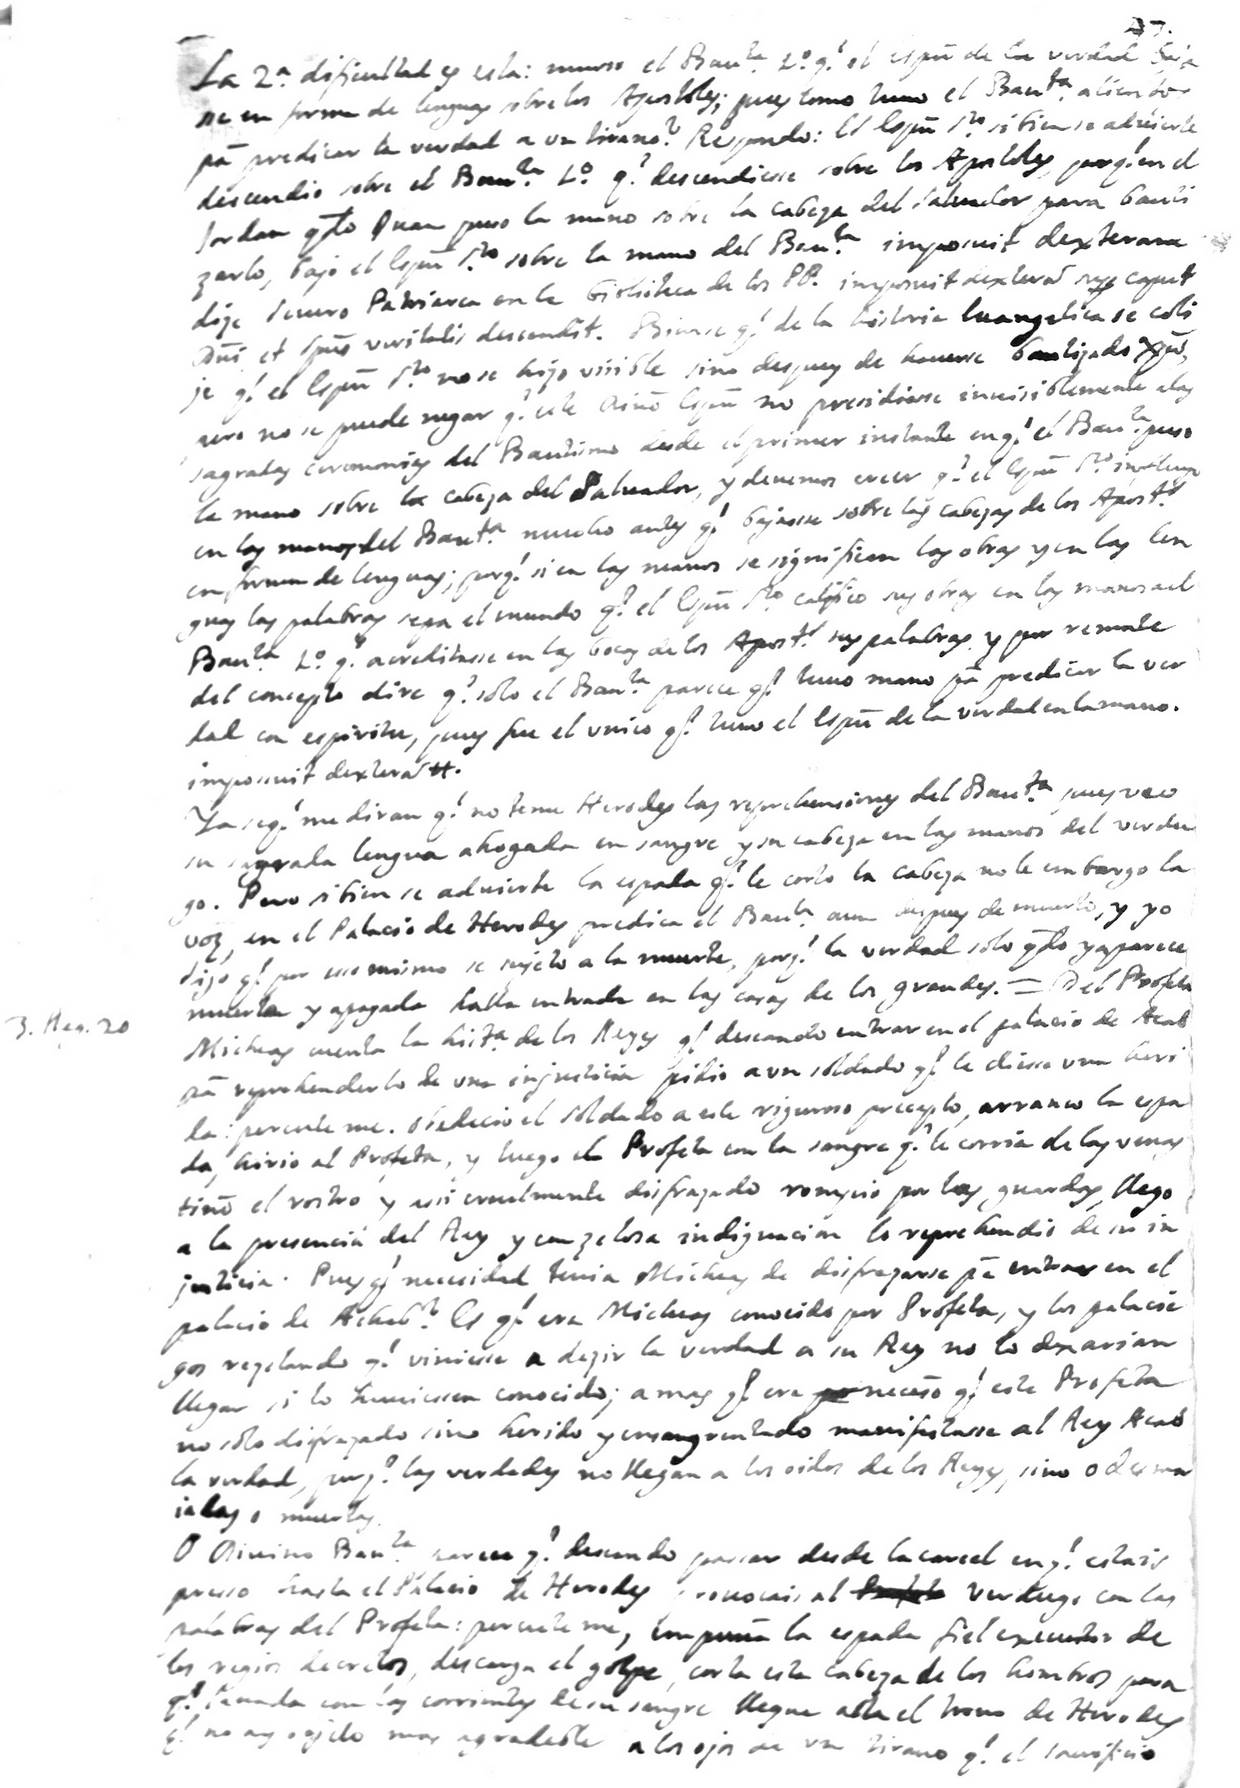 La 2.ª dificultad es esta: murio el Bau.ta 1.º q.e el espũ de la verdad baja
se en forma de lenguas sobre los Apostoles; pues como tuuo el Bau.ta aliento
pã predicar la verdad a un tirano? Respondo: El Espũ S.to si bien se aduierte
descendio sobre el Bau.ta 1.º q.e descendiesse sobre los Apostoles, porq.e en el
Jordan q.do Juan puso la mano sobre la cabeza del Saluador para bauti
zarlo, bajo el Espũ S.to sobre la mano del Bau.ta imposuit dexteram
dize Seuero Patriarca en la biblioteca de los PP. imposuit dexterã sup caput
Dñi et Spũs veritatis descendit. Bien se q.e de la historia Euangelica se coli
je q.e el Espũ S.to no se hizo visible sino despues de hauerse bautizado Xpũ,
pero no se puede negar q.e este Diuiño Espũ no presidiesse inuisiblemente a las
sagradas ceremonias del Bautismo desde el primer instante en q.e el Bau.ta puso
la mano sobre la cabeza del Saluador, y deuemos creer q.e el Espũ S.to
en las manos del Bau.ta mucho antes q.e bajasse sobre las cabezas de los Apost.s
en forma de lenguas; porq.e si en las manos se significan las obras y en las len
guas las palabras sepa el mundo q.e el Espũ S.to califico sus obras en las manos del
Bau.ta 1.º q.e acreditasse en las bocas de los Apost.s sus palabras, y por remate
del concepto dire q.e solo el Bau.ta parece q.e tuuo mano pã predicar la ver
dad con espiritu, pues fue el unico q.e tuuo el Espũ de la verdad en la mano.
imposuit dexterã #.
Ya se q.e me diran q.e no teme Herodes las reprehensiones del Bau.ta pues veo
su sagrada lengua ahogada en sangre y su cabeza en las manos del verdu
go. Pero si bien se aduierte la espada q.e le corto la cabeza no le embargo la
voz, en el Palacio de Herodes predica el Bau.ta aun despues de muerto, y yo
digo q.e por esso mismo se sujeto a la muerte, porq.e la verdad solo q.do ya parece
muerta y apagada halla entrada en las casas de los grandes. = Del Profeta
3. Reg. 20
Micheas cuenta la hist.a de los Reyes q.e deseando entrar en el palacio de Acab
pã reprehenderlo de una injusticia pidio a un soldado q.e le diesse una heri
da: percute me. obedecio el soldado a este riguroso precepto, arranco la espa
da, hirio al Profeta, y luego el Profeta con la sangre q.e le corria de las venas
tiño el rostro y assi cruelmente disfrazado rompio por las guardas, llego
a la presencia del Rey y con zelosa indignacion lo reprehendio de su in
justicia. Pues q.e necesidad tenia Micheas de disfrazarse pã entrar en el
palacio de Achab? Es q.e era Micheas conocido por Profeta, y los palacie
gos rezelando q.e viniesse a dezir la verdad a su Rey no lo dexarian
llegar si lo huuiessen conocido; a mas q.e era neceso q.e este Profeta
no solo disfrazado sino herido y ensangrentado manifestasse al Rey Acab
la verdad, porq.e las verdades no llegan a los oidos de los Reyes, sino o desma
iadas o muertas.
O Diuino Bau.ta parece q.e deseando passar desde la carcel en q.e estais
presso hasta el Palacio de Herodes prouocais al verdugo con las
palabras del Profeta: percute me, empuña la espada fiel executor de
los regios decretos, descarga el golpe, corta esta cabeza de los hombros para
q.e con las corrientes de su sangre llegue asta el trono de Herodes
q.e no ay objeto mas agradable a los ojos de un tirano q.e el sacrificio